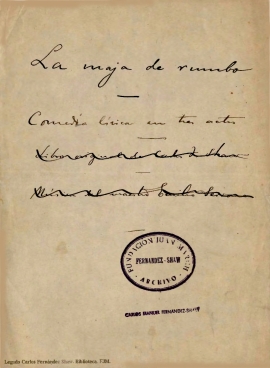 La maja de rumbo
Comedia lírica en tres actos
FUNDACION JUAN MARCH
FERNANDEZ-SHAW
ARCHIVO
CARLOS MANUEL FERNANDEZ-SHAW
Legado Carlos Fernández Shaw. Biblioteca. FJM.